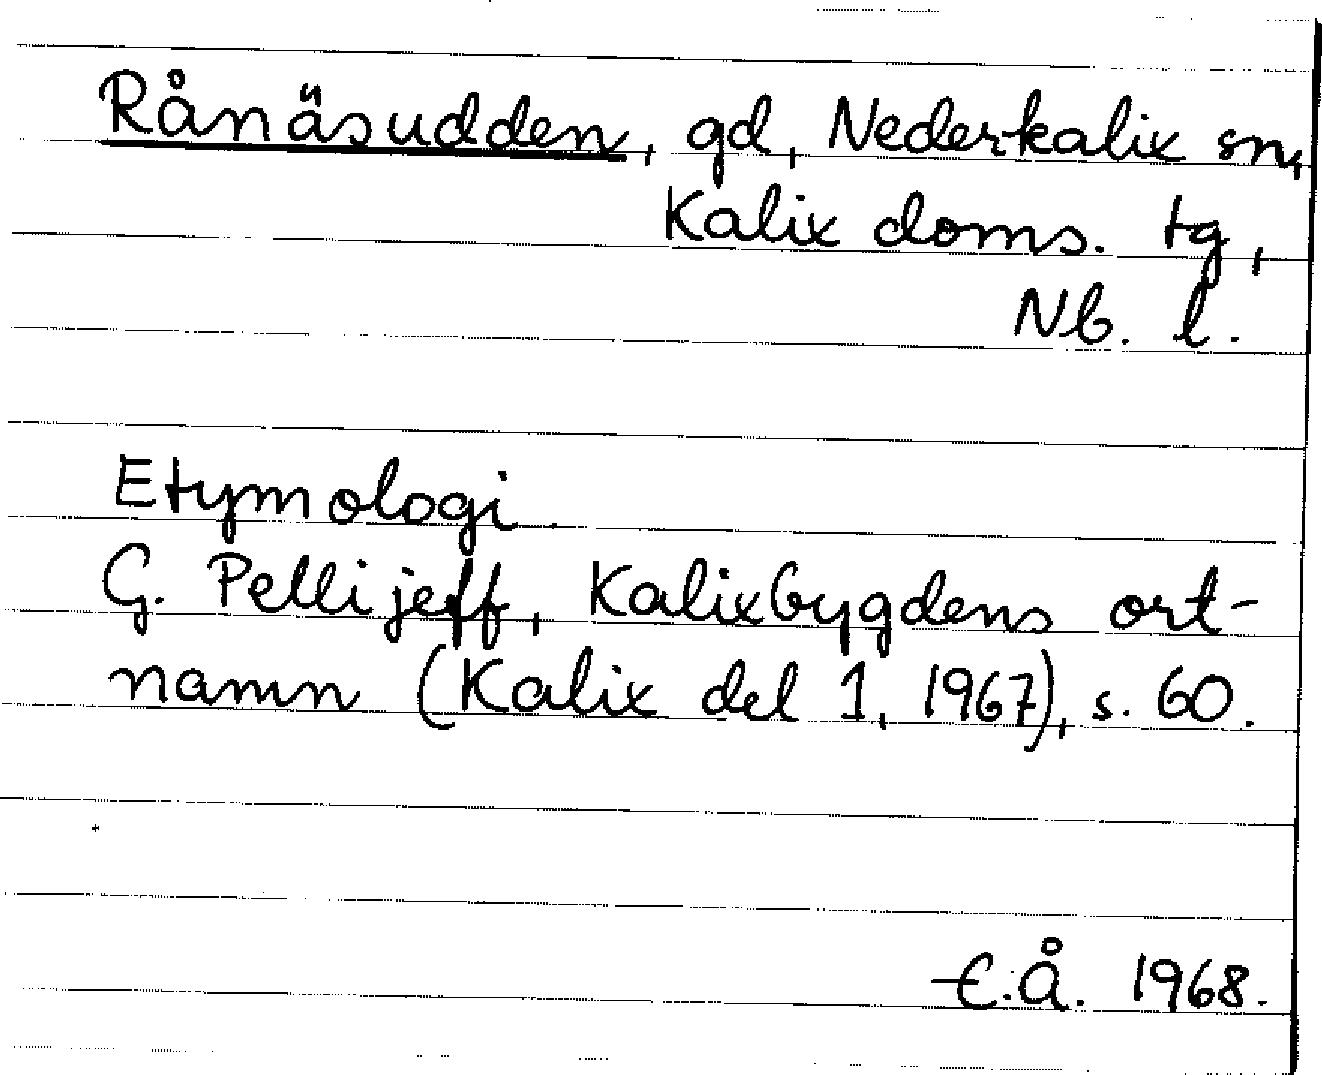 Rånäsudden, gd, Nederkalix sn,
Kalix doms. tg,
Nb. l.
Etymologi
G. Pellijeff, Kalixbygdens ort-
namn (Kalix del 1, 1967), s. 60.
E.Å. 1968.